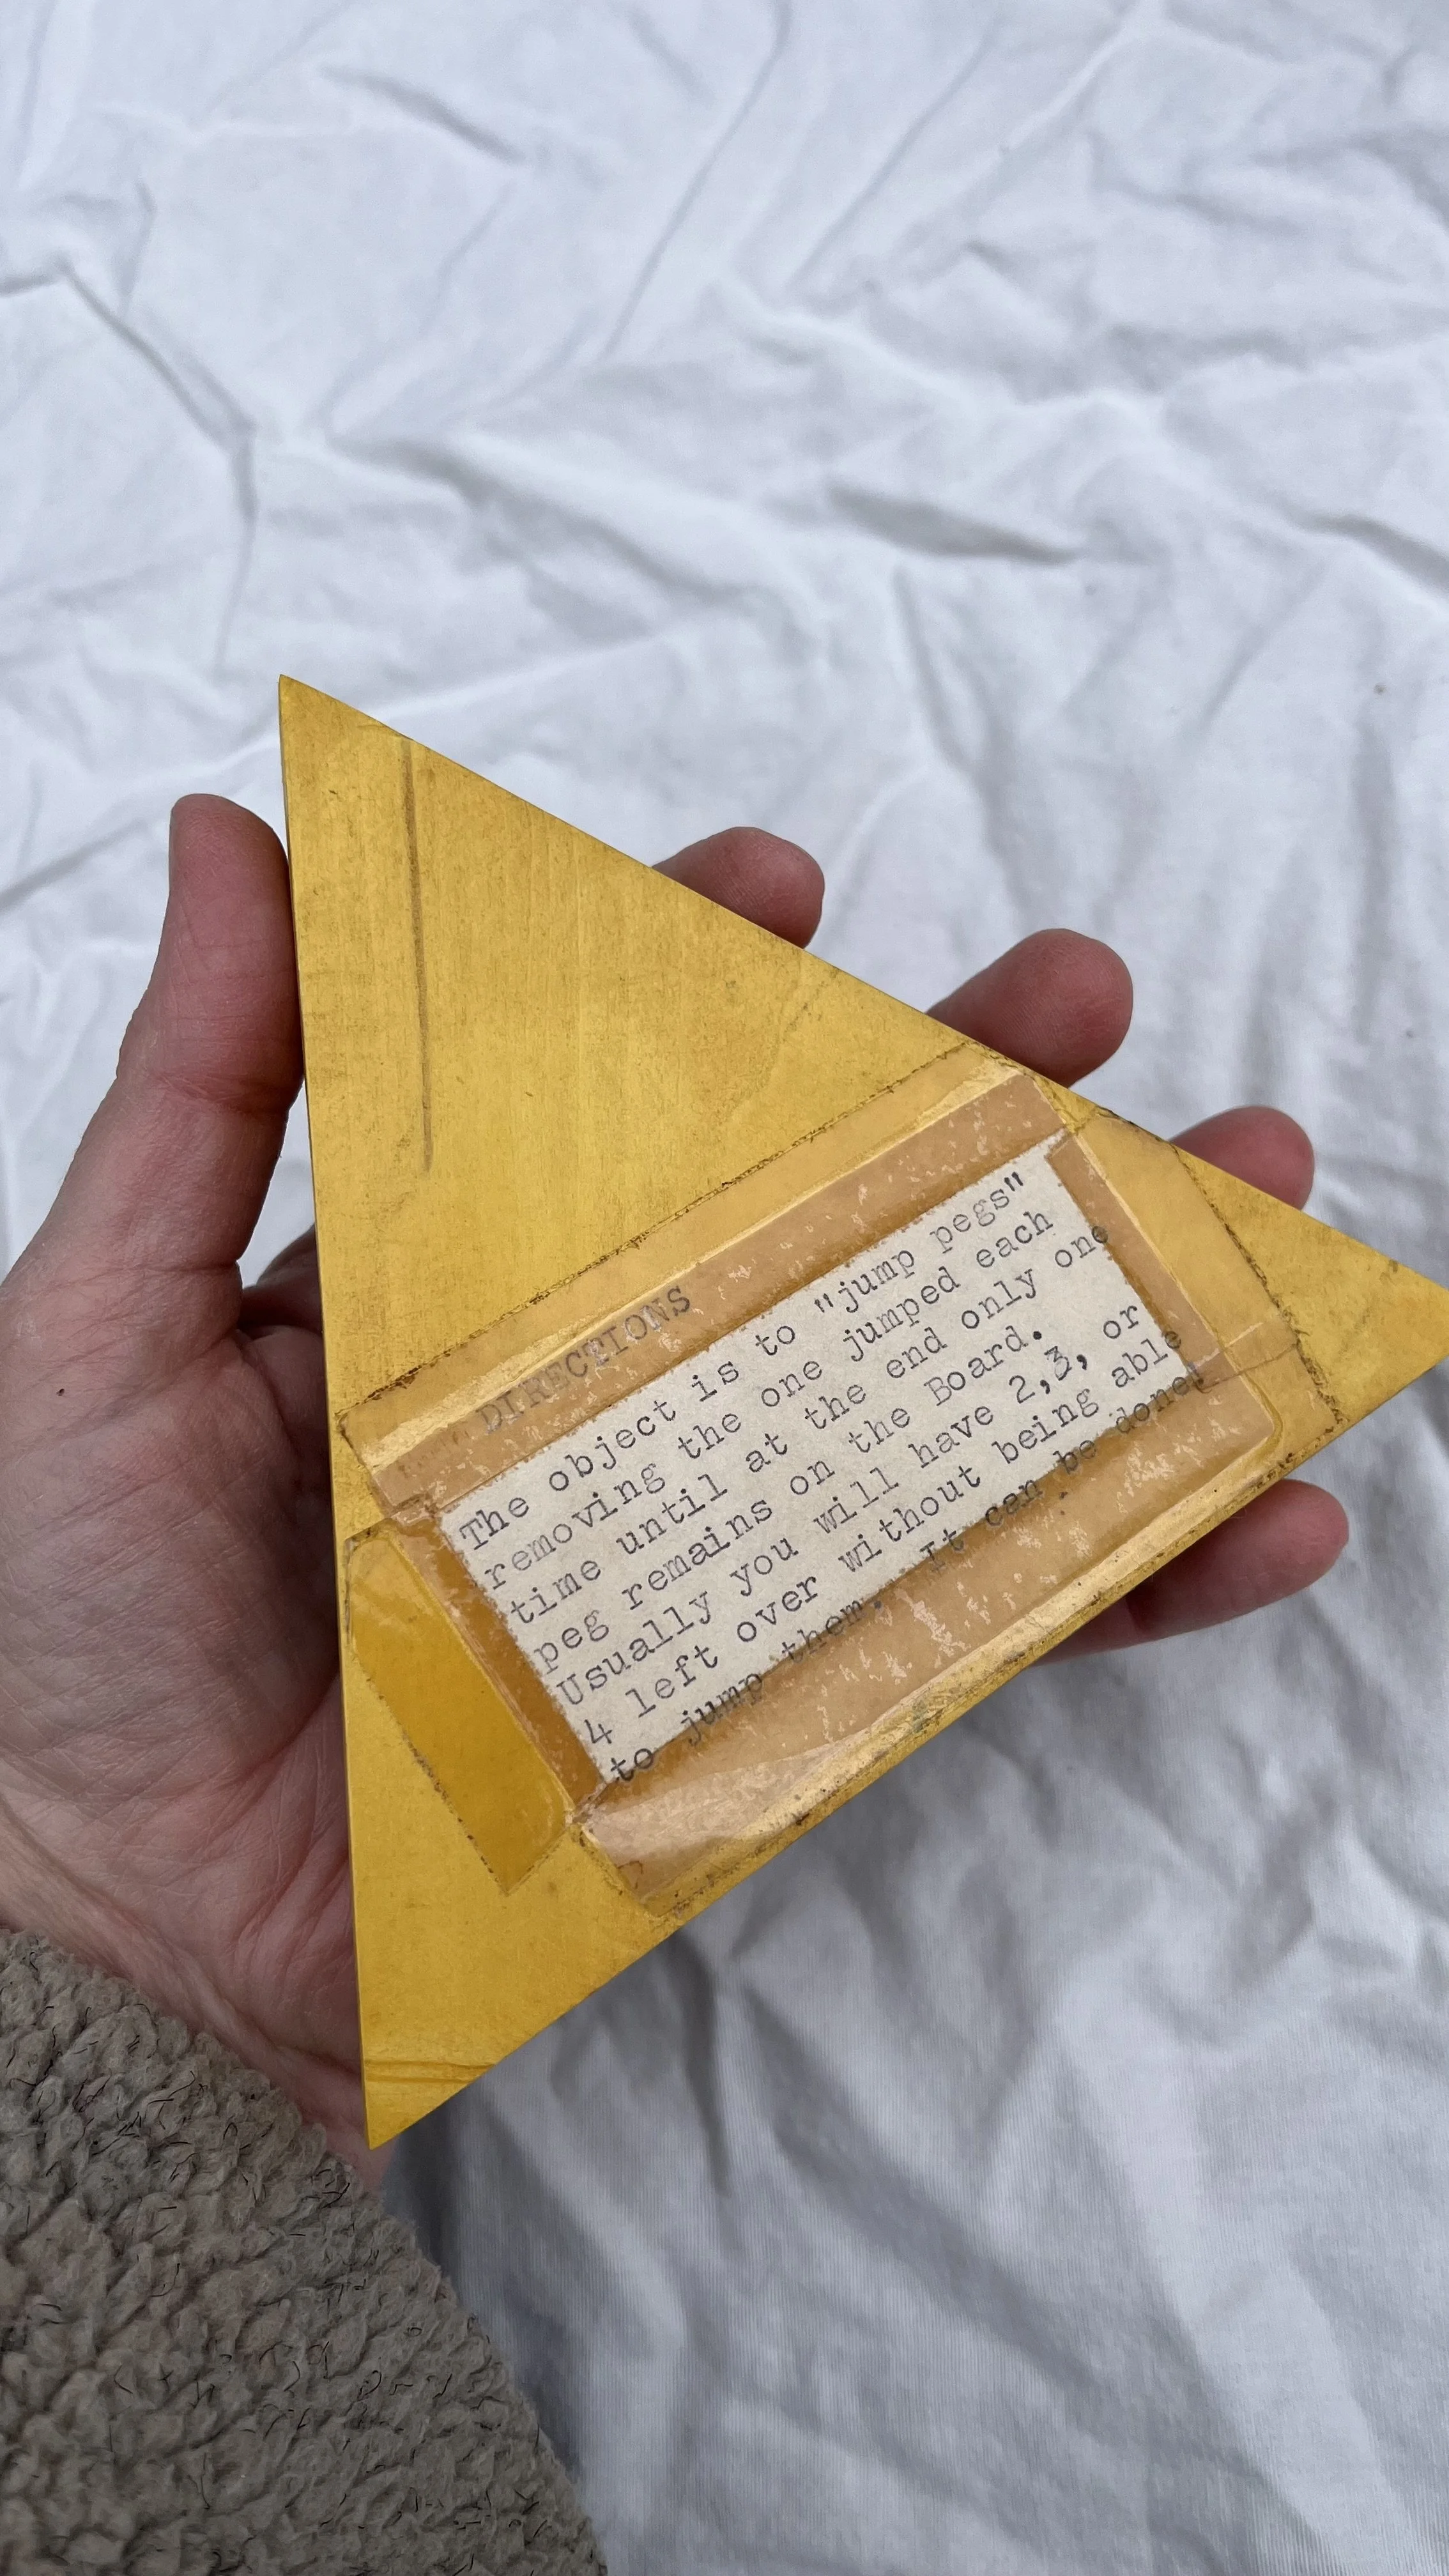 DIRECTIONS
The object is to "jump pegs"
removing the one jumped each
time until at the end only one
peg remains on the Board.
Usually you will have 2,3, or
4 left over without being able
to jump them. It can be done!